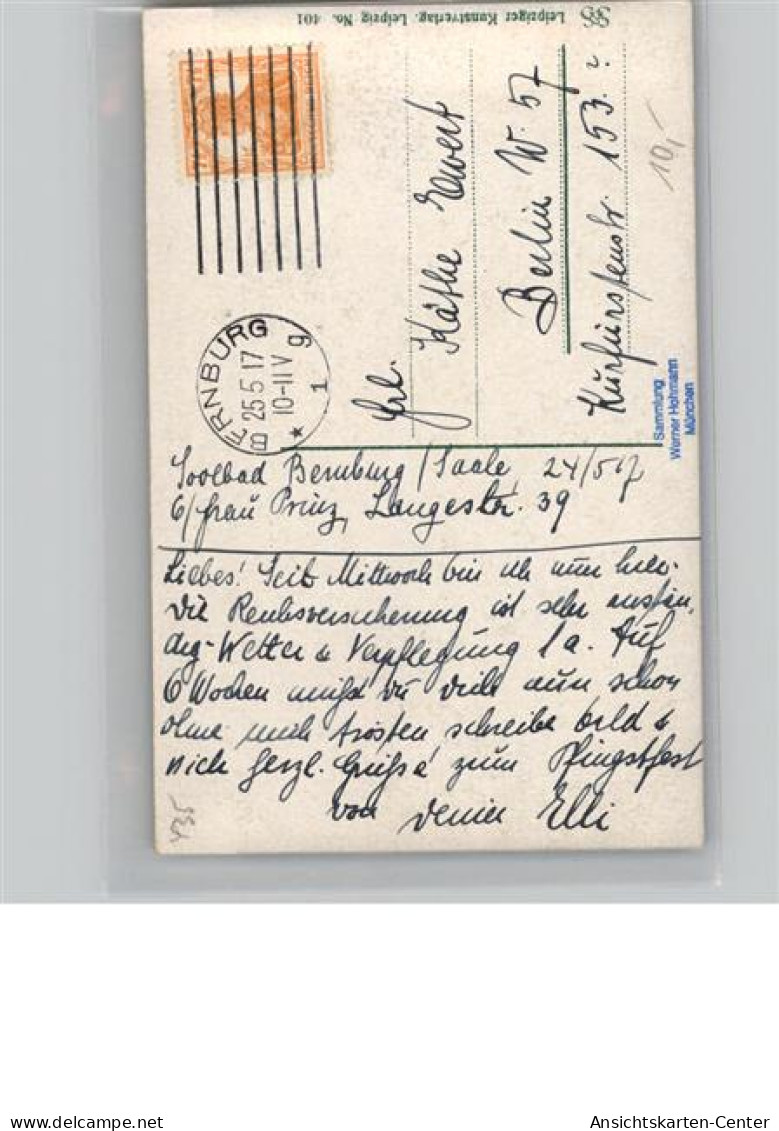 Leipziger Kunstverlag. Leipzig No. 401
BERNBURG
25 5 17
10-11 V
* 1 g
Frl.
Käthe Ewert
Berlin W. 57
Kurfürstenstr. 153.
10,-
Sammlung
Werner Hohmann
München
Soolbad Bernburg / Saale, 24/5 17
b/ Frau Prinz, Langestr. 39
Liebes! Seit Mittwoch bin ich nun hier.
Die Reichsversicherung ist sehr anstän,
dig - Wetter & Verpflegung 1 a. Auf
6 Wochen mußt du dich nun schon
ohne mich trösten, schreibe bald &
herzl. Grüße zum Pfingstfest
von Deiner Elli
435
Ansichtskarten-Center